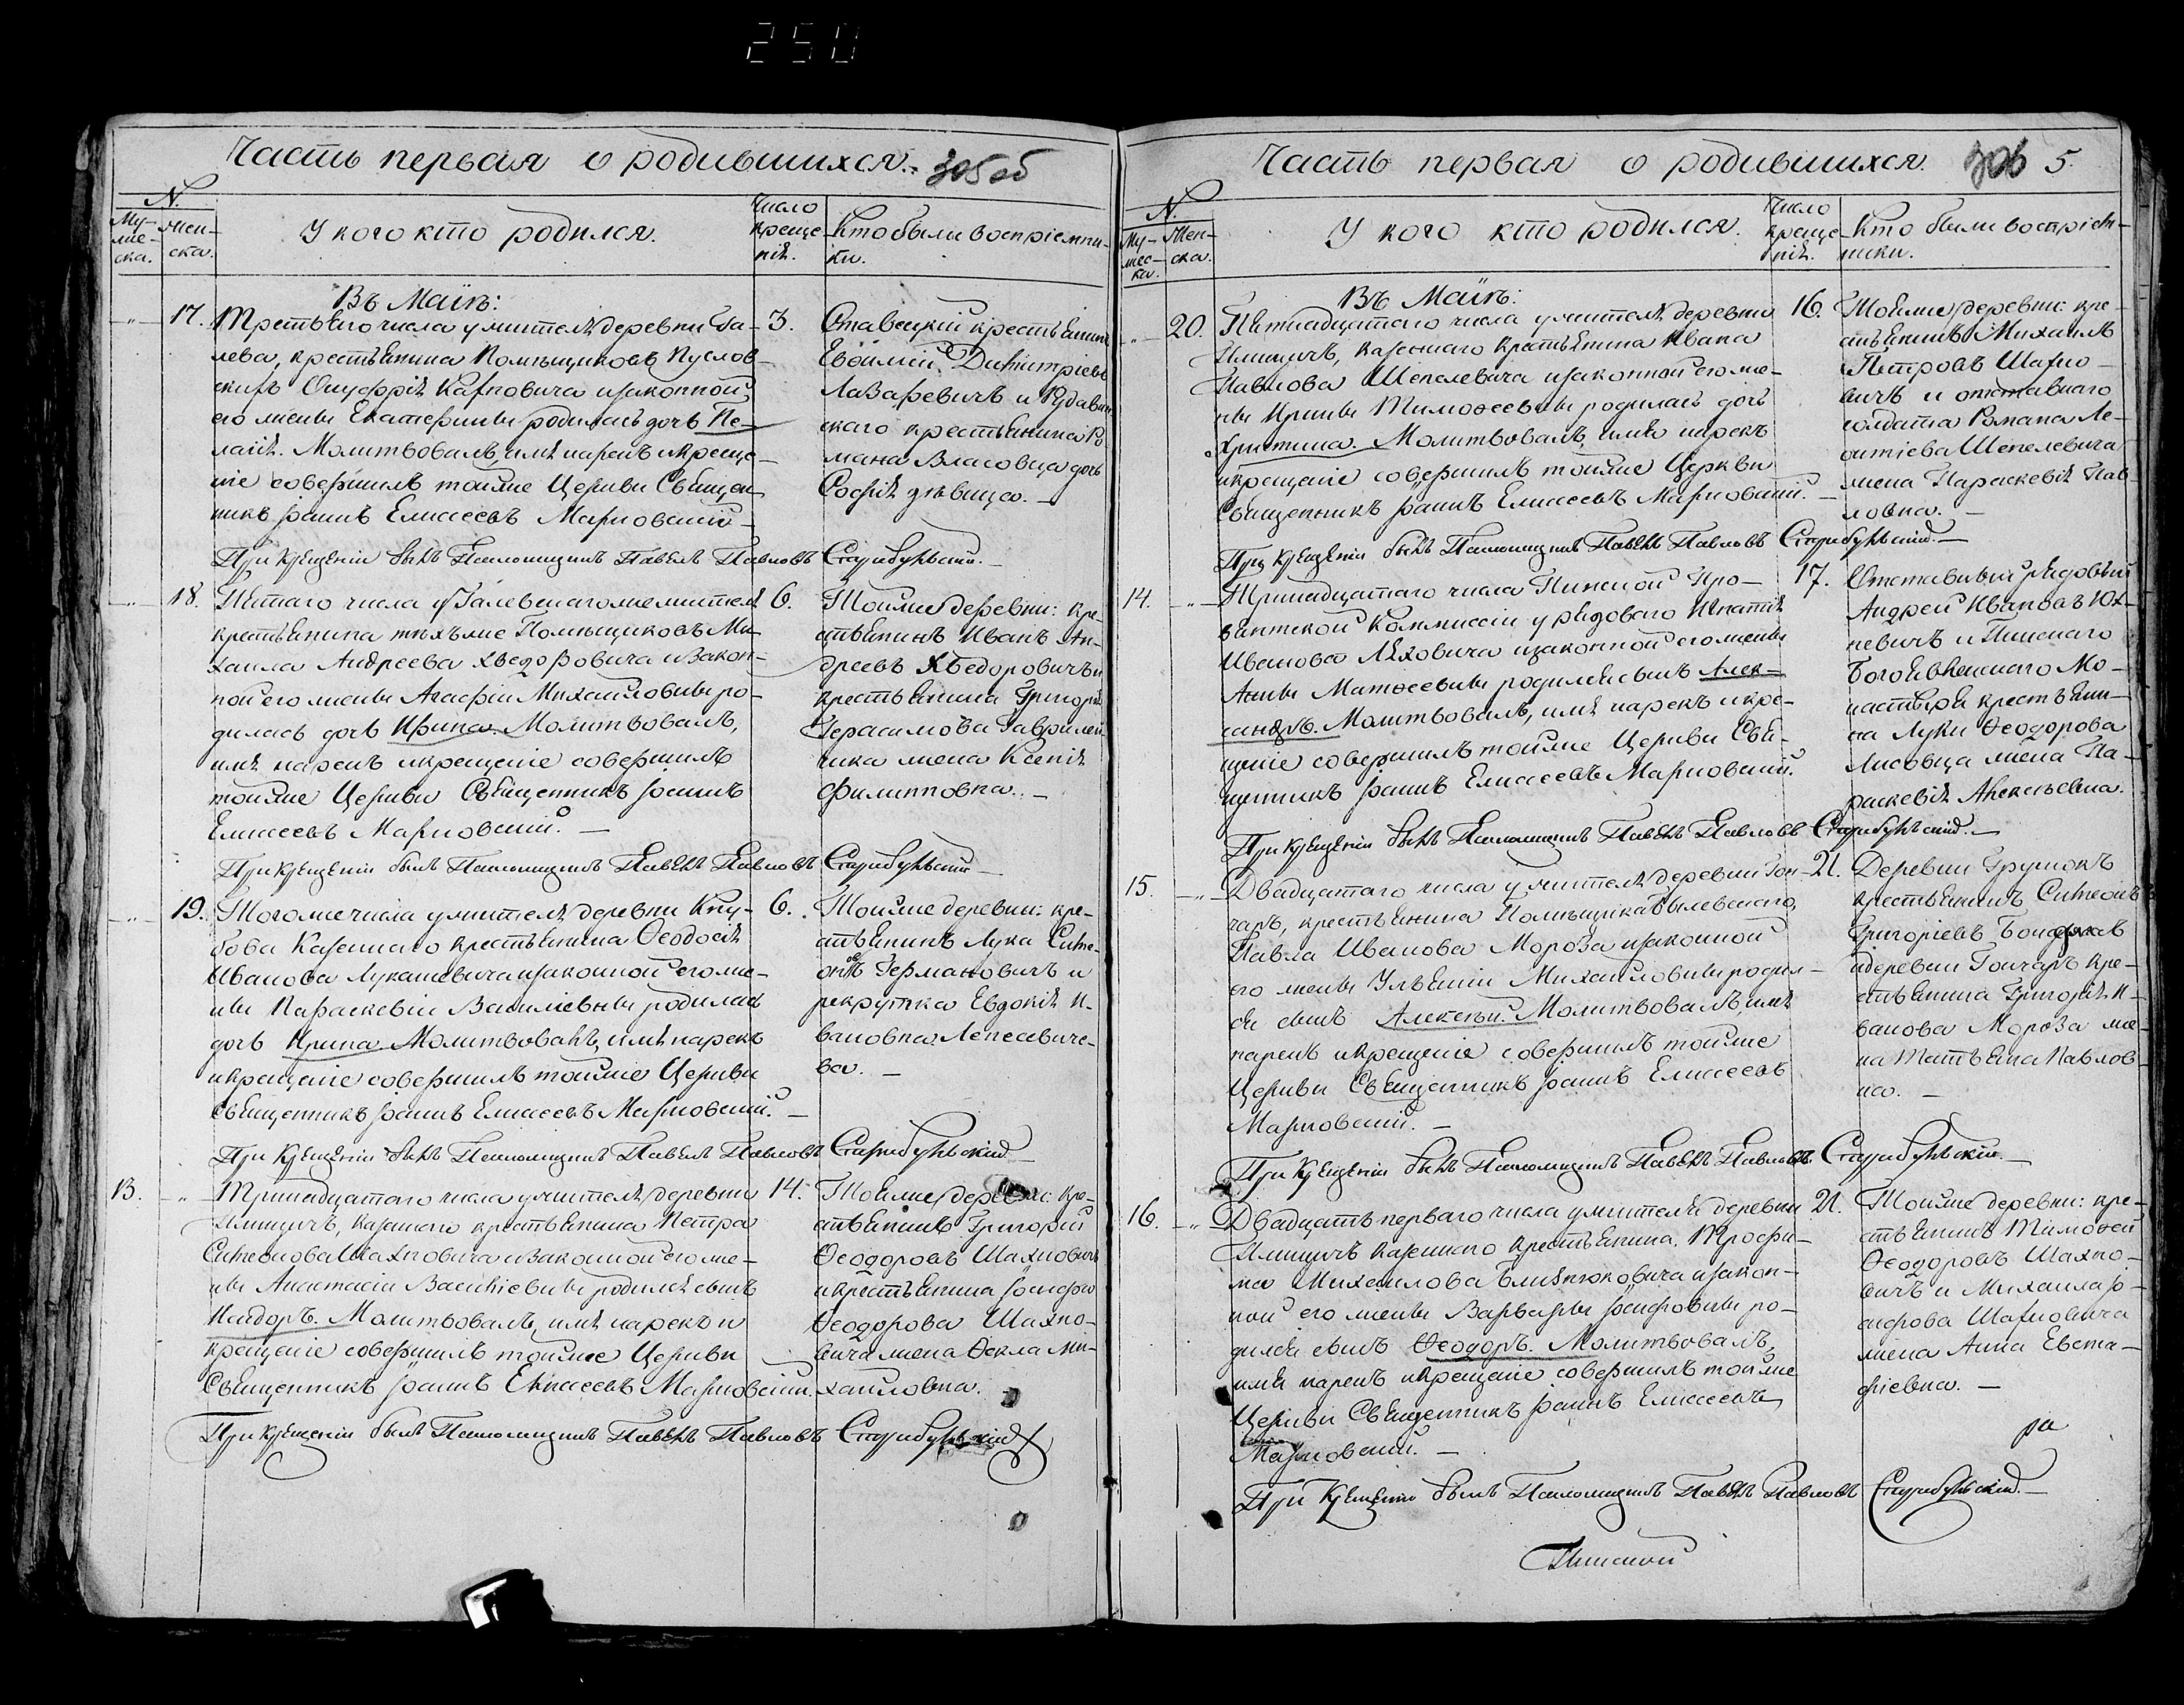 250
Часть первая о родившихся.
305 об
N.
Му-
жес-
ска.
Жен-
ска.
У кого кто родился.
Число
креще-
нія.
Кто были воспріемни-
ки.
Въ Маіѣ:
17.
Третьяго числа у жителя деревни Га-
лева, крестьянина Помѣщиковъ Пуслов-
скихъ Онуфрія Карповича и законной
его жены Екатерины родилась дочь Пе-
лагія. Молитвовалъ, имя нарекъ и креще-
ніе совершилъ тойже Церкви Священ-
никъ Іоаннъ Елисеевъ Марновскій
3.
Ставецкій крестьянинъ
Евѳимій Димитріевъ
Лазаревичъ и
скаго крестьянина Ро-
мана Власовца дочь
Софія дѣвица.
При крещеніи былъ Паломщикъ Павелъ Павловъ
18.
Пятаго числа у Галевскаго же жителя
крестьянина тѣхъже Помѣщиковъ Ми-
хаила Андреева Хведоровича и закон-
ной его жены Агафіи Михайловны ро-
дилась дочь Ирина. Молитвовалъ,
имя нарекъ и крещеніе совершилъ
тойже Церкви Священникъ Іоаннъ
Елисеевъ Марновскій.
6.
Тойже деревни: кре-
стьянинъ Иванъ Ан-
дреевъ Хведоровичъ и
крестьянина Григорія
Герасимова Гаврилен-
чика жена Ксенія
Филипповна.
При крещеніи былъ Паломщикъ Павелъ Павловъ
19.
Того же числа у жителя деревни Кну-
бова Казеннаго крестьянина Ѳеодосія
Иванова Лукашевича и законной его же-
ны Параскевіи Василіевны родилась
дочь Ирина. Молитвовалъ, имя нарекъ
и крещеніе совершилъ тойже Церкви
Священникъ Іоаннъ Елисеевъ Марновскій.
6.
Тойже деревни: кре-
стьянинъ Лука Симе-
оновъ Германовичъ и
рекрутка Евдокія И-
вановна Лепесевиче-
ва.
При крещеніи былъ Паломщикъ Павелъ Павловъ
13.
Тринадцатаго числа у жителя деревни
казеннаго крестьянина Петра
Симеонова Шахновича и законной его же-
ны Анастасіи Василіевны родился сынъ
Исидоръ. Молитвовалъ, имя нарекъ и
крещеніе совершилъ тойже Церкви
Священникъ Іоаннъ Елисеевъ Марновскій.
14.
Тойже деревни: кре-
стьянинъ Григорій
Ѳеодоровъ Шахновичъ
и крестьянина Іосифа
Ѳеодорова Шахно-
вича жена Ѳекла Ми-
хайловна.
При крещеніи былъ Паломщикъ Павелъ Павловъ
Часть первая о родившихся.
306 5.
N.
Му-
жес-
ка.
Жен-
ска.
У кого кто родился.
Число
креще-
нія.
Кто были воспріем-
ники.
Въ Маіѣ:
20.
Пятнадцатаго числа у жителя деревни
казеннаго крестьянина Ивана
Павлова Шепелевича и законной его же-
ны Ирины Тимоѳеевны родилась дочь
Христина. Молитвовалъ, имя нарекъ
и крещеніе совершилъ тойже Церкви
Священникъ Іоаннъ Елисеевъ Марновскій.
16.
Тойже деревни: кре-
стьянинъ Михаилъ
Петровъ Шахно-
вичъ и отставнаго
солдата Романа Ле-
онтіева Шепелевича
жена Параскевія Пав-
ловна.
При крещеніи былъ Паломщикъ Павелъ Павловъ
14.
Тринадцатаго числа Пинской Про-
віантской Коммиссіи у рядоваго Игнатія
Иванова Ляховича и законной его жены
Анны Матѳеевны родился сынъ Алек-
сандръ. Молитвовалъ, имя нарекъ и кре-
щеніе совершилъ тойже Церкви Свя-
щенникъ Іоаннъ Елисеевъ Марновскій.
17.
Отставный рядовый
Андрей Ивановъ Юх-
невичъ и Пинскаго
Богоявленскаго Мо-
настыря крестьяни-
на Луки Ѳеодорова
Лисовца жена Па-
раскевія Алексѣевна.
При крещеніи былъ Паломщикъ Павелъ Павловъ
15.
Двадцатаго числа у жителя деревни Гон-
чаръ, крестьянина Помѣщика
Павла Иванова Мороза и законной
его жены Ульяніи Михайловны родил-
ся сынъ Алексѣй. Молитвовалъ, имя
нарекъ и крещеніе совершилъ тойже
Церкви Священникъ Іоаннъ Елисеевъ
Марновскій.
21.
Деревни
крестьянинъ Симеонъ
Григоріевъ
и деревни Гончаръ кре-
стьянина Григорія И-
ванова Мороза же-
на Татьяна Павлов-
на.
При крещеніи былъ Паломщикъ Павелъ Павловъ
16.
Двадцать перваго числа у жителя деревни
казеннаго крестьянина Трофи-
ма Михайлова и закон-
ной его жены Варвары Іосифовны ро-
дился сынъ Ѳеодоръ. Молитвовалъ,
имя нарекъ и крещеніе совершилъ тойже
Церкви Священникъ Іоаннъ Елисеевъ
Марновскій.
21.
Тойже деревни: кре-
стьянинъ Тимоѳей
Ѳеодоровъ Шахно-
вичъ и Михаила Іо-
сифова Шахновича
жена Анна Евста-
фіевна.
При крещеніи былъ Паломщикъ Павелъ Павловъ
Пинской